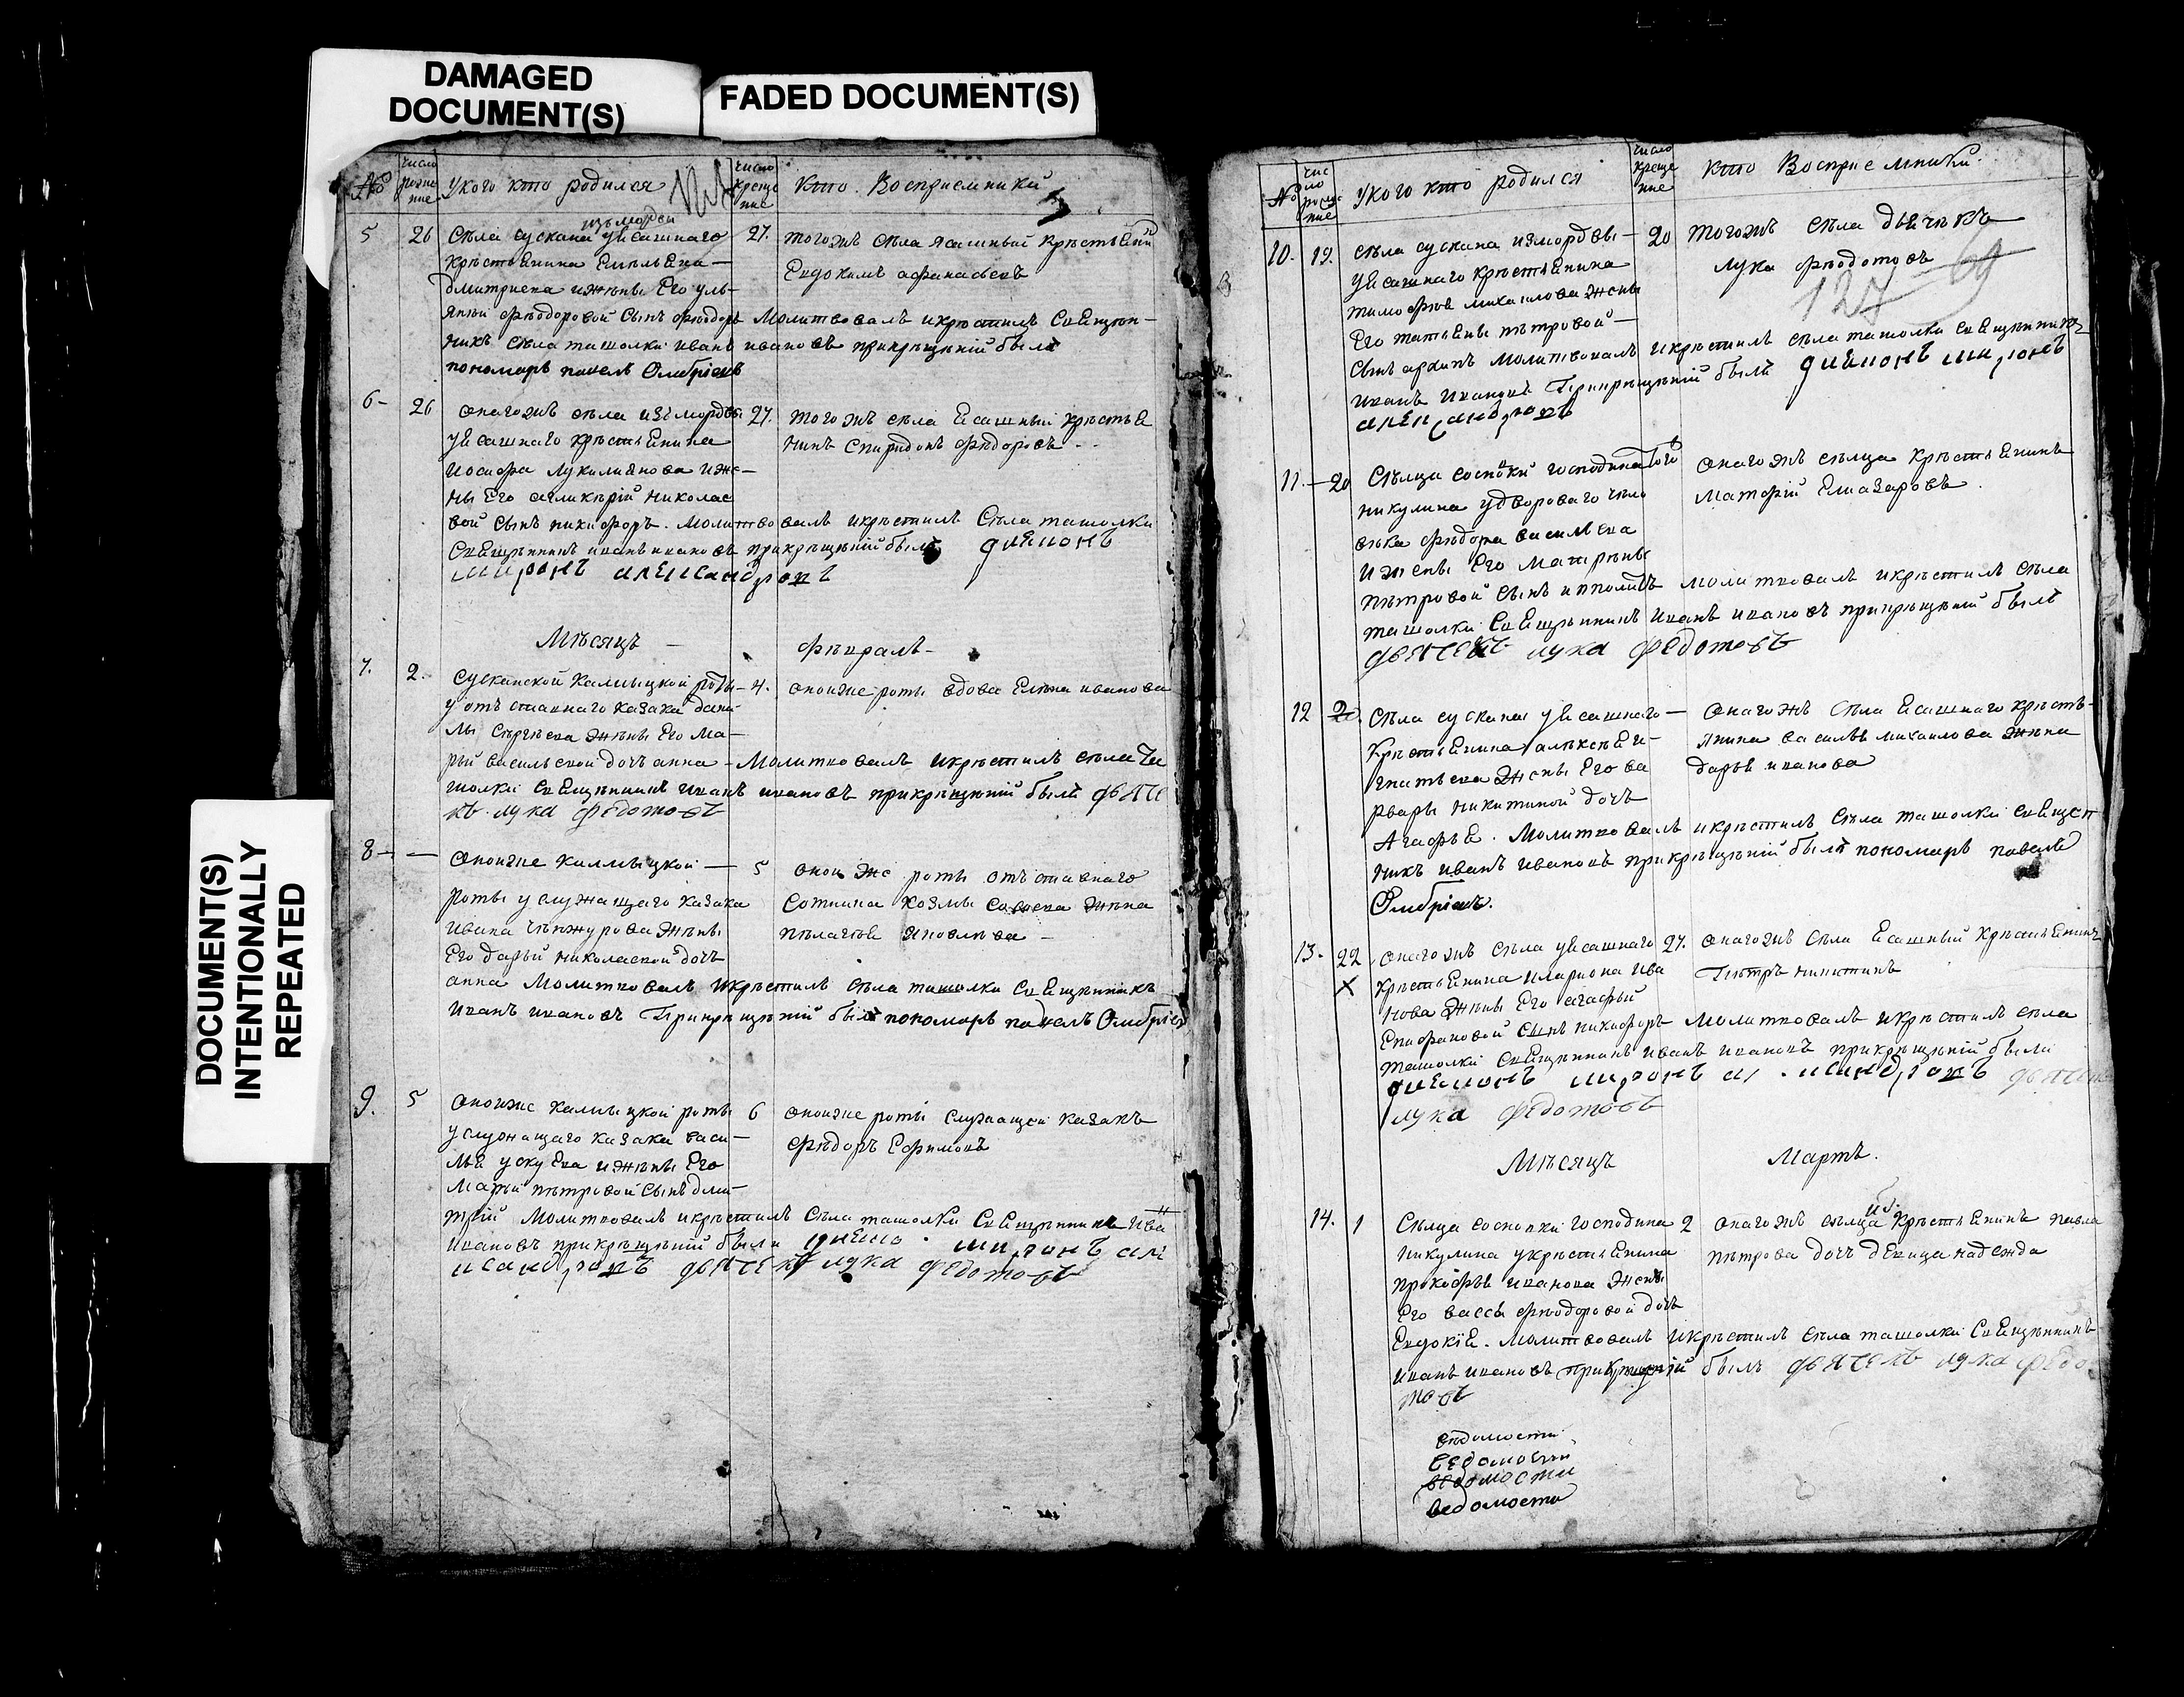 DAMAGED
DOCUMENT(S)
FADED DOCUMENT(S)
DOCUMENT(S)
INTENTIONALLY
REPEATED
№
число рожде ние
у кого кто родился
число креще ние
кто Восприемники
5
26
27.
изъ мордвы
Села сускана уясашнаго
крестьенина Емельена
дмитриева ижены Его уль-
янеи феодоровой Сынъ феодоръ Молитвовалъ икрестилъ Священ-
никъ села ташолки иванъ ивановъ прикрещении былъ
пономарь павелъ Олибріевъ
тогожъ села ясашный крестьенин
Евдокимъ афанасьевъ
6-
26
27.
онагожъ села измордвы
уясашнаго крестьенина
Иосифа лукиянова иже-
ны Его гликерїи николае
вой Сынъ никифоръ. Молитвовалъ икрестилъ Села ташолки
Священникъ иванъ ивановъ прикрещении былъ диеконъ
миронъ александровъ
того жъ села Ясашный крестье
нинъ спиридонъ федоровъ
Месяцъ
февраль
7.
2.
4.
Сусканской калмыцкой роты
у отъставнаго казака дани
лы сергеева жены Его ма-
рьи васильевой дочь анна - Молитвовалъ икрестилъ села та
шолки священникъ иванъ ивановъ прикрещении былъ дьяче
къ лука федотовъ
оноиже роты вдова Елена иванова
8
5
Оноиже калмыцкой
роты у служащаго казака
Ивана чемжурова жены
Его дарьи николаевой дочь
анна Молитвовалъ икрестилъ села ташолки Священникъ
Иванъ ивановъ Прикрещении былъ пономарь павелъ Олибріевъ
оной же роты отъставнаго
Сотника козмы Савоева жена
пелагеЯ яковлева
9.
5
6
Оноиже калмыцкой роты
услужащаго казака васи-
лья ижены Его
Марьи петровой Сынъ дми-
трїи Молитвовалъ икрестилъ Села ташолки Священникъ Ива
ивановъ прикрещении были диеко миронъ але
ксандровъ дьячекъ лука федотовъ
оноиже роты служащей казакъ
федоръ Ефимовъ
№
чис ло рожде ние
у кого кто родился
число креще ние
кто Восприемники.
10.
19.
20
127
69
Села сускана измордвы
уясашнаго крестьенина
тимофея михаилова жены
Его татьены петровой
Сынъ архипъ Молитвовалъ икрестилъ села ташолки священникъ
иванъ Ивановъ Прикрещении былъ диеконъ миронъ
александровъ
тогожъ Села дьячекъ
лука феодотовъ
11.
20
того
Сельца сосновки господина
никулина удвороваго чело
века федора васильева
ижены Его матрены
петровой Сынъ ипполитъ Молитвовалъ икрестилъ села
ташолки Священникъ Иванъ ивановъ прикрещении былъ
дьячекъ лука федотовъ
онагожъ сельца крестьенинъ
матфїи Елиазаровъ.
12
20.
Села сускана уясашнаго
Крестьенина алексеЯ и-
гнатьева жены Его ва
рвары никитиной дочь
АгафьЯ. Молитвовалъ икрестилъ Села ташолки священ
никъ иванъ Ивановъ прикрещении былъ пономарь павелъ
Олибріевъ.
Онагожъ села Ясашнаго кресть-
янина василья михаилова жена
дарья иванова
13.
22
27.
X
онагожъ села уясашнаго
крестьенина илариона ива
нова жены Его агафьи
Епифановой Сынъ никифоръ Молитвовалъ икрестилъ села
ташолки Священникъ иванъ ивановъ прикрещении были
диеконъ миронъ александровъ дьячекъ
лука федотовъ
онагожъ Села Ясашный крестьенинъ
Петръ никитинъ
Месяцъ
Мартъ.
14.
1
2
Сельца сосновки господина
Никулина укрестьенина
прокофья иванова жены
Его вассы феодоровой дочь
ЕвдокїЯ. Молитвовалъ икрестилъ села ташолки Священникъ
иванъ ивановъ прикрещении былъ дьячекъ лука федо
товъ
онагожъ сельца крестьенина павла
петрова дочь девица надежда
ведомости
ведомости
ведомости
ведомости